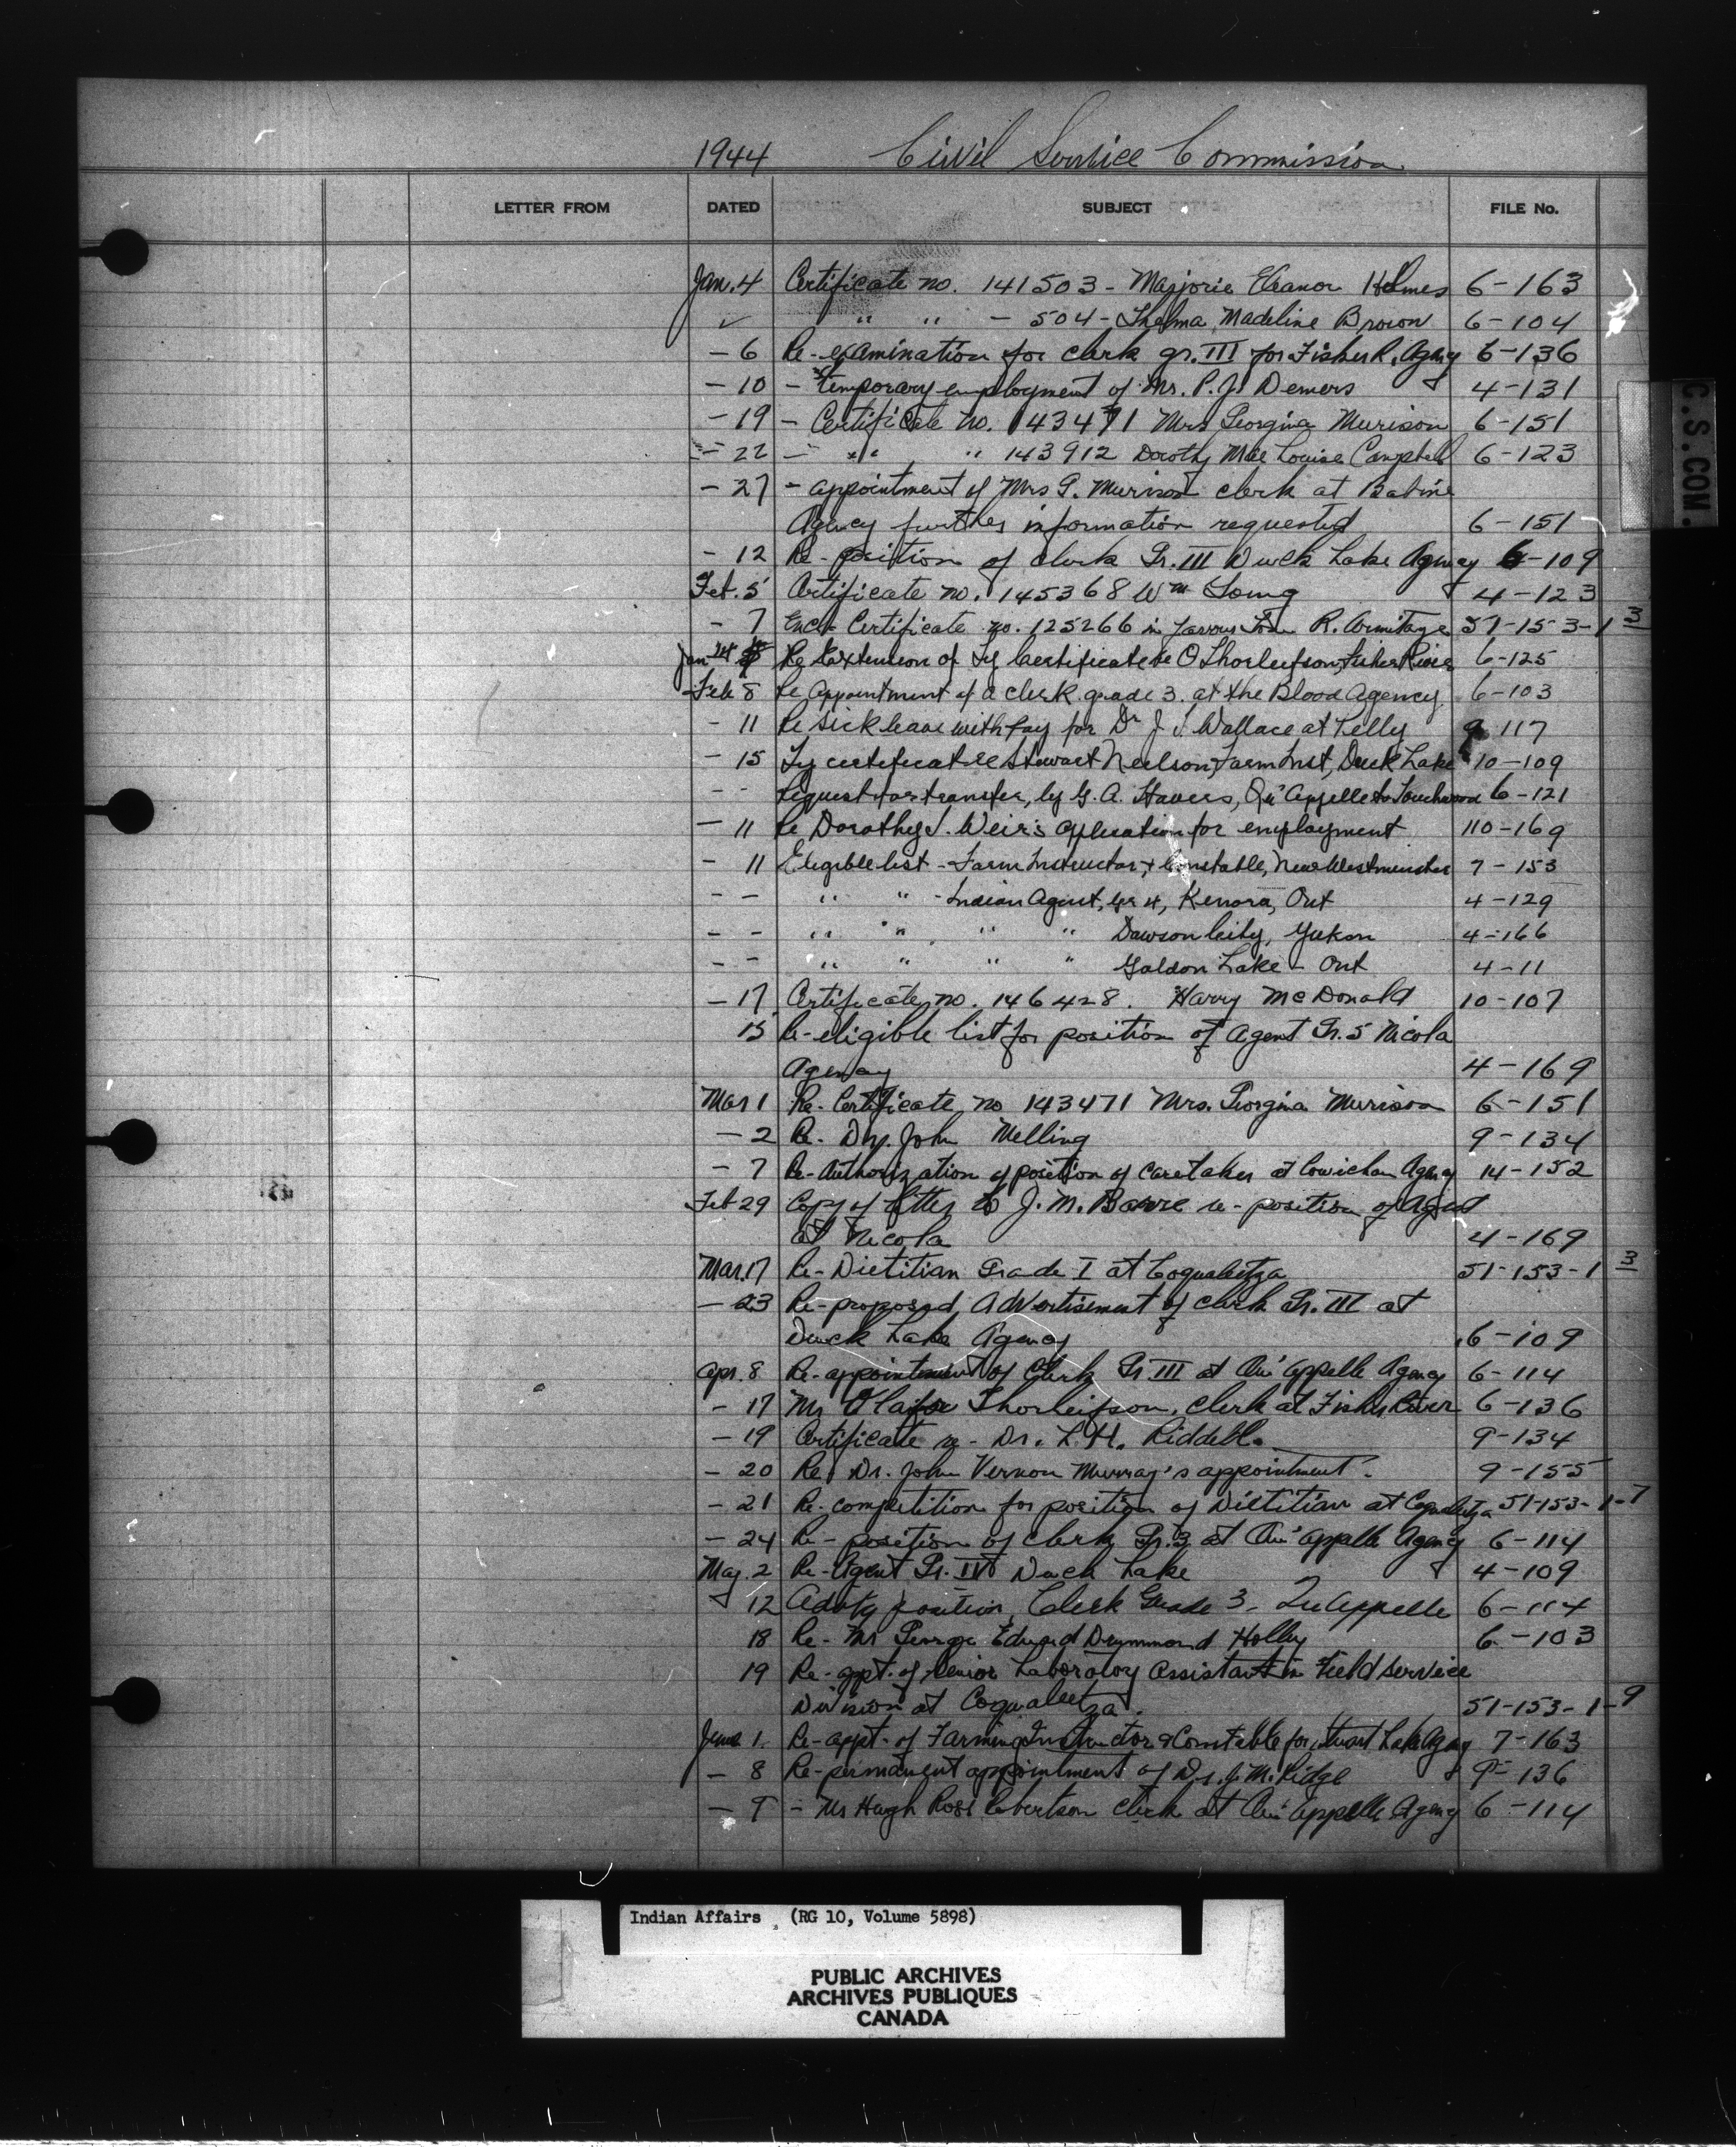 1944 Civil Service Commission
LETTER FROM DATED SUBJECT FILE No.
Jan. 4 Certificate no. 141503 - Marjorie Eleanor Holmes 6-163
" " - 504 - Thelma Madeline Brown 6-104
- 6 Re-examination for clerk gr. III for Fisher R. Agency 6-136
- 10 - temporary employment of Mr. P. J. Demers 4-131
- 19 - Certificate no. 143471 Mrs Georgina Murison 6-151
- 22 - " " 143912 Dorothy Mae Louise Campbell 6-123
- 27 - appointment of Mrs G. Murison clerk at Babine
Agency further information requested 6-151
- 12 Re-position of clerk Gr. III Duck Lake Agency 6-109
Feb. 5 Certificate no. 145368 Wm Young 4-123
- 7 Encl- Certificate no. 125266 in favour R. Armitage 51-153-1 3
Jan 24 Re Extension of Ty Certificate re O Thorleifson, Fisher River 6-125
Feb 8 Re Appointment of a clerk grade 3. at the Blood Agency. 6-103
- 11 Re Sick leave with pay for Dr J. S. Wallace at Pelly 9-117
- 15 Ty certificate re Stewart Neilson, Farm Inst, Duck Lake 10-109
- - Request for transfer, by G. A. Havers, Qu'Appelle to Touchwood 6-121
- 11 Re Dorothy J. Weir's application for employment 110-169
- 11 Eligible list - Farm Instructor, + Constable, New Westminster 7-153
- - " " - Indian Agent, Gr 4, Kenora, Ont 4-129
- - " " " " Dawson City, Yukon 4-166
- - " " " " Lake - Ont 4-11
- 17 Certificate no. 146428. Harry McDonald 10-107
15 Re-eligible list for position of Agent Gr. 5 Nicola
Agency 4-169
Mar 1 Re-Certificate no 143471 Mrs. Georgina Murison 6-151
- 2 Re- Dr. John Melling 9-134
- 7 Re-Authorization of position of caretaker at Cowichan Agency 14-152
Feb 29 Copy of letter to J. M. Barre re-position of Agent
at Nicola 4-169
Mar. 17 Re-Dietitian Grade I at Coqualeetza 51-153-1 3
- 23 Re-proposed Advertisement of clerk Gr. III at
Duck Lake Agency 6-109
Apr. 8 Re-appointment of Clerk Gr. III at Qu'Appelle Agency 6-114
- 17 Mr Thorleifson, Clerk at Fisher River 6-136
- 19 Certificate re- Dr. L. H. Riddell. 9-134
- 20 Re. Dr. John Vernon Murray's appointment. 9-155
- 21 Re-competition for position of Dietitian at Coqualeetza 51-153-1-7
- 24 Re-position of Clerk Gr. 3 at Qu'Appelle Agency 6-114
May. 2 Re-Agent Gr. IV Duck Lake 4-109
12 position, Clerk Grade 3 - Qu Appelle 6-114
18 Re- Mr George Edward Drummond Holley 6-103
19 Re-appt. of Senior Laboratory Assistant in Field Service
Division at Coqualeetza. 51-153-1-9
June 1. Re-appt. of Farming Instructor & Constable for Stuart Lake Agency 7-163
- 8 Re-permanent appointment of Dr. J. M. Ridge 9-136
- 9 - Mr Hugh Ross Robertson Clerk at Qu'Appelle Agency 6-114
C.S.COM.
Indian Affairs (RG 10, Volume 5898)
PUBLIC ARCHIVES
ARCHIVES PUBLIQUES
CANADA